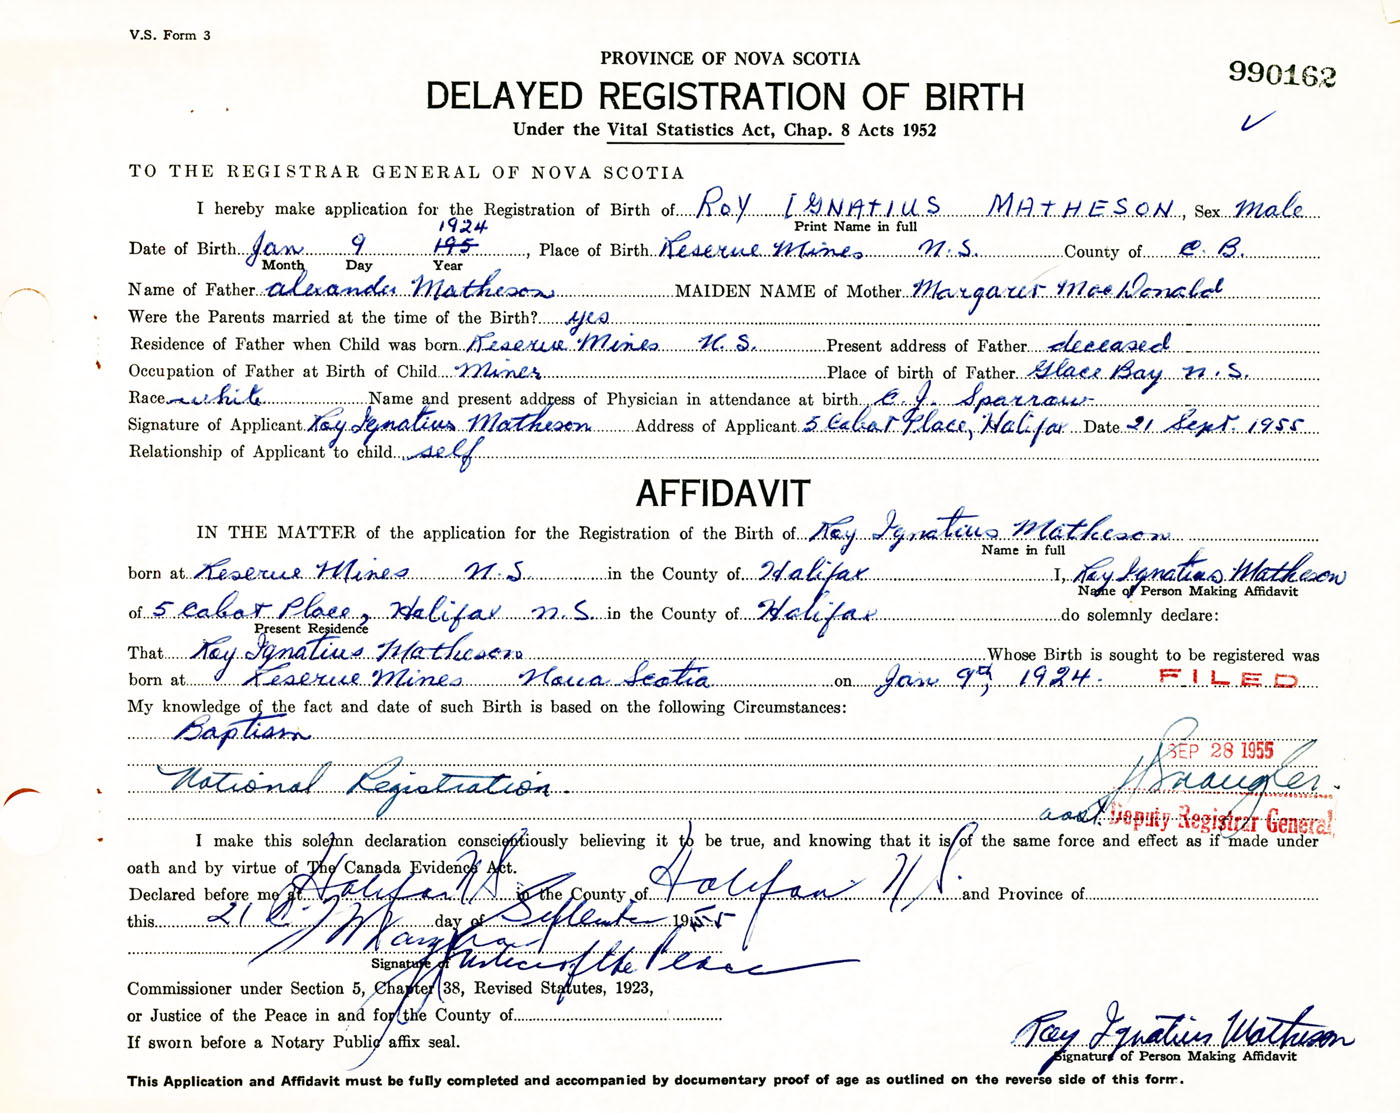 V.S. Form 3
PROVINCE OF NOVA SCOTIA
990162
DELAYED REGISTRATION OF BIRTH
Under the Vital Statistics Act, Chap. 8 Acts 1952
TO THE REGISTRAR GENERAL OF NOVA SCOTIA
I hereby make application for the Registration of Birth of ROY IGNATIUS MATHESON, Sex Male
Print Name in full
1924
Date of Birth Jan 9 195, Place of Birth Reserve Mines N.S. County of C.B.
Month Day Year
Name of Father Alexander Matheson MAIDEN NAME of Mother Margaret MacDonald
Were the Parents married at the time of the Birth? yes
Residence of Father when Child was born Reserve Mines N.S. Present address of Father deceased
Occupation of Father at Birth of Child Miner Place of birth of Father Glace Bay N.S.
Race white Name and present address of Physician in attendance at birth C. J. Sparrow
Signature of Applicant Roy Ignatius Matheson Address of Applicant 5 Cabot Place, Halifax Date 21 Sept. 1955
Relationship of Applicant to child self
AFFIDAVIT
IN THE MATTER of the application for the Registration of the Birth of Roy Ignatius Matheson
Name in full
born at Reserve Mines N.S. in the County of Halifax I, Roy Ignatius Matheson
Name of Person Making Affidavit
of 5 Cabot Place, Halifax N.S. in the County of Halifax do solemnly declare:
Present Residence
That Roy Ignatius Matheson Whose Birth is sought to be registered was
born at Reserve Mines Nova Scotia on Jan 9th, 1924. FILED
My knowledge of the fact and date of such Birth is based on the following Circumstances:
Baptism
SEP 28 1955
National Registration.
asst. Deputy Registrar General
I make this solemn declaration conscientiously believing it to be true, and knowing that it is of the same force and effect as if made under
oath and by virtue of The Canada Evidence Act.
Declared before me at Halifax N.S. in the County of Halifax N.S. and Province of
this 21 day of September 1955
Signature of Justice of the Peace
Commissioner under Section 5, Chapter 38, Revised Statutes, 1923,
or Justice of the Peace in and for the County of
If sworn before a Notary Public affix seal.
Roy Ignatius Matheson
Signature of Person Making Affidavit
This Application and Affidavit must be fully completed and accompanied by documentary proof of age as outlined on the reverse side of this form.